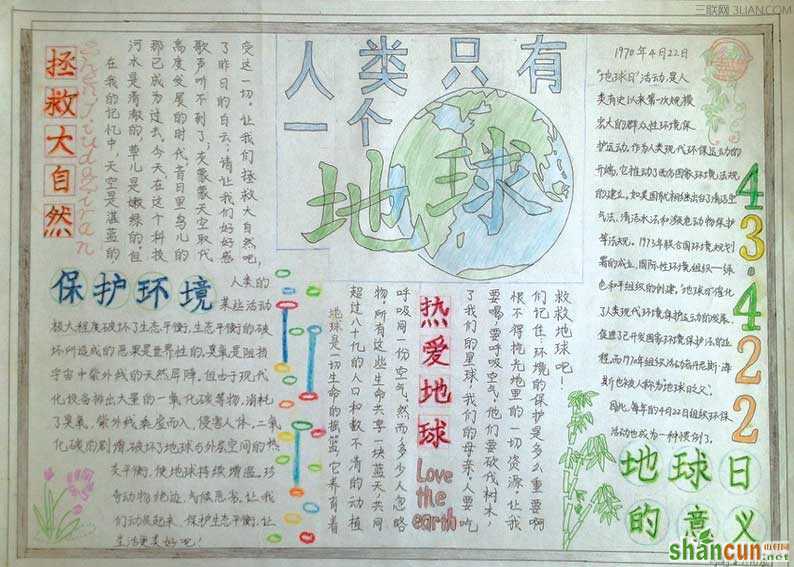 三联网 3LIAN.COM
人类只有
一个
地球
拯救大自然
Shenjiudaziran
在我的记忆中，天空是湛蓝的
河水是清澈的，草儿是嫩绿的，但
那已成为过去，今天在这个科技
高度发展的时代，昔日里鸟儿的
歌声听不到了；灰蒙蒙天空取代
了昨日的白云；请让我们好好感
受这一切，让我们拯救大自然吧，
保护环境
人类的
某些活动
极大程度破坏了生态平衡，生态平衡的破
坏所造成的恶果是世界性的，臭氧是阻挡
宇宙中紫外线的天然屏障。但由于现代
化设备排出大量的一氧化碳等物，消耗
了臭氧，紫外线乘虚而入，侵害人体。二氧
化碳的剧增，破坏了地球与外层空间的热
交平衡，使地球持续增温。珍
奇动物绝迹，气候恶劣，让我
们动员起来，保护生态平衡，让
生活更美好吧！
地球是一切生命的摇篮，它养育着
超过八十九的人口和数不清的动植
物，所有这些生命共享一块蓝天，共同
呼吸同一份空气。然而多少人忽略
热爱地球
Love
the
earth
了我们的星球，我们的母亲，人要吃
要喝，要呼吸空气，他们要砍伐树木，
恨不得挖光地里的一切资源，让我
们记住：环境的保护是多么重要啊
救救地球吧！
1970年4月22日
“地球日”活动，是人
类有史以来第一次规模
宏大的群众性环境保
护运动。作为人类现代环保运动的
开端，它推动了西方国家环境法规
的建立。如美国就相继出台了清洁空
气法，清洁水法和濒危动物保护
等法规。1973年联合国环境规划
署的成立，国际性环境组织—绿
色和平组织的创建。“地球日”强化
了人类现代环境保护运动的发展，
促进了已开发国家环境保护法的进
程，而1970年组织活动者丹尼斯·海
斯也被人称为地球日之父。
因此，每年的4月22日组织环保
活动也成为一种惯例了。
43·422
地球日
的意义
shancun
山村网
.net